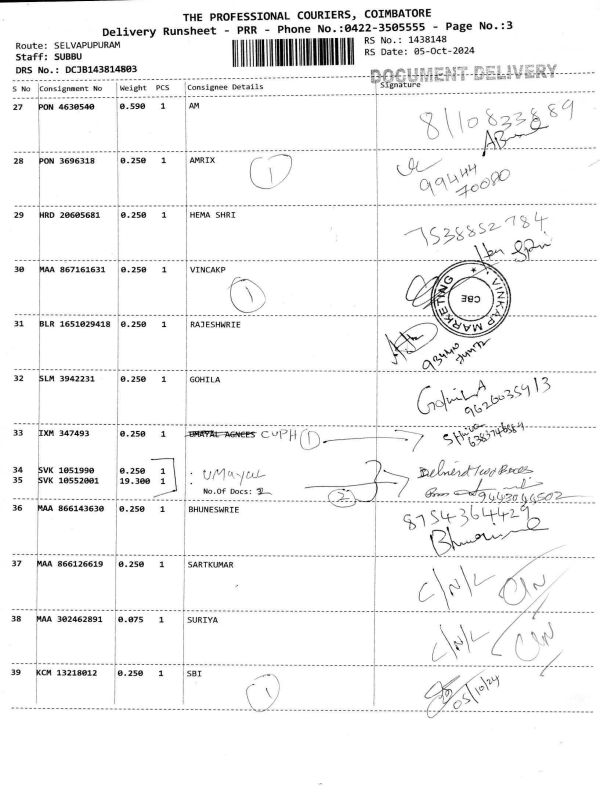 THE PROFESSIONAL COURIERS, COIMBATORE
Delivery Runsheet - PRR - Phone No.:0422-3505555 - Page No.:3
Route: SELVAPUPURAM
RS No.: 1438148
Staff: SUBBU
RS Date: 05-Oct-2024
DRS No.: DCJB143814803
DOCUMENT DELIVERY
S No Consignment No Weight PCS Consignee Details Signature
27 PON 4630540 0.590 1 AM
8110833889
28 PON 3696318 0.250 1 AMRIX 1
99444
70080
29 HRD 20605681 0.250 1 HEMA SHRI
7538852784
30 MAA 867161631 0.250 1 VINCAKP 1
VINKAP MARKETING
CBE
31 BLR 1651029418 0.250 1 RAJESHWRIE
93440
32 SLM 3942231 0.250 1 GOHILA
Gohila
9626035913
33 IXM 347493 0.250 1 UMAYAL AGNCES CUPH 1
6383746984
34 SVK 1051990 0.250 1 : UMayal
35 SVK 10552001 19.300 1 No.Of Docs: 2 2
9443044502
36 MAA 866143630 0.250 1 BHUNESWRIE
8754364429
37 MAA 866126619 0.250 1 SARTKUMAR
C/N/L
38 MAA 302462891 0.075 1 SURIYA
C/N/L
39 KCM 13218012 0.250 1 SBI 1
05/10/24